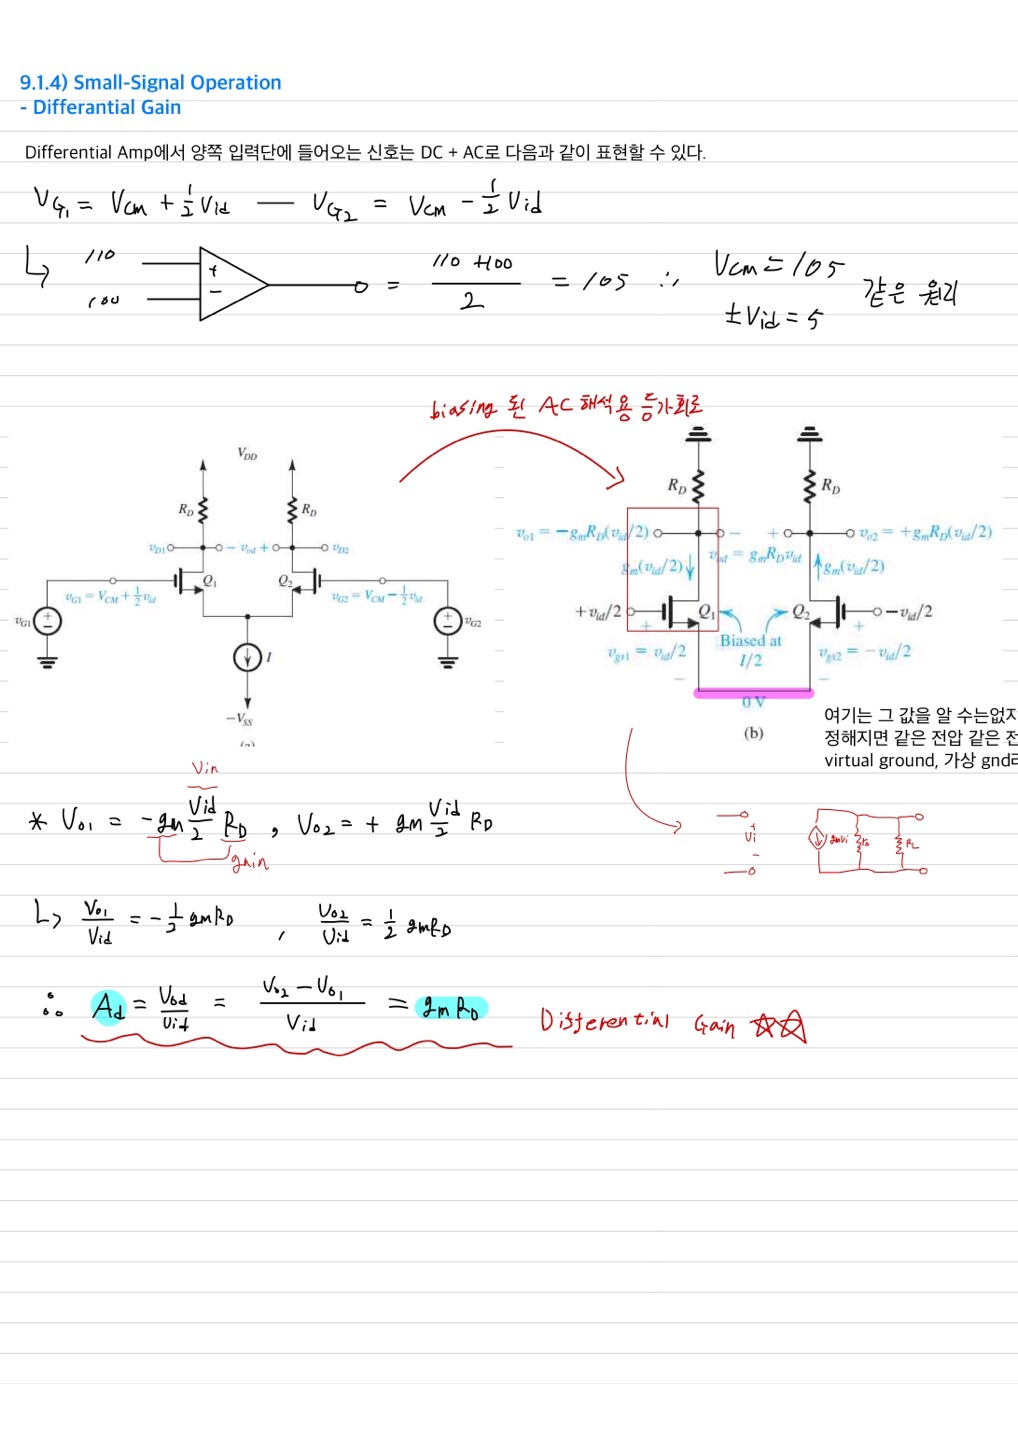 9.1.4) Small-Signal Operation
- Differantial Gain
Differential Amp에서 양쪽 입력단에 들어오는 신호는 DC + AC로 다음과 같이 표현할 수 있다.
V_G1 = V_CM + 1/2 V_id — V_G2 = V_CM - 1/2 V_id
↳ 110 + = (110 + 100)/2 = 105 ∴ V_CM = 105 같은 원리
100 - ±V_id = 5
biasing 된 AC 해석용 등가회로
V_DD
R_D R_D
v_D1 - v_od + v_D2
Q_1 Q_2
v_G1 = V_CM + 1/2 v_id v_G2 = V_CM - 1/2 v_id
v_G1 + - + - v_G2
I
-V_SS
R_D R_D
v_o1 = -g_m R_D(v_id/2) - + v_o2 = +g_m R_D(v_id/2)
v_od = g_m R_D v_id
g_m(v_id/2) g_m(v_id/2)
+v_id/2 Q_1 Q_2 -v_id/2
+ Biased at +
v_gs1 = v_id/2 I/2 v_gs2 = -v_id/2
- -
0 V
(b)
여기는 그 값을 알 수는없지
정해지면 같은 전압 같은 전
virtual ground, 가상 gnd라
Vin
* V_o1 = -gm V_id/2 R_D , V_o2 = + gm V_id/2 R_D
gain
+ Vi - gmVi ro R_L
↳ V_o1/V_id = -1/2 gm R_D , V_o2/V_id = 1/2 gm R_D
∴ A_d = V_od/V_id = (V_o2 - V_o1)/V_id = gm R_D Differential Gain ☆☆